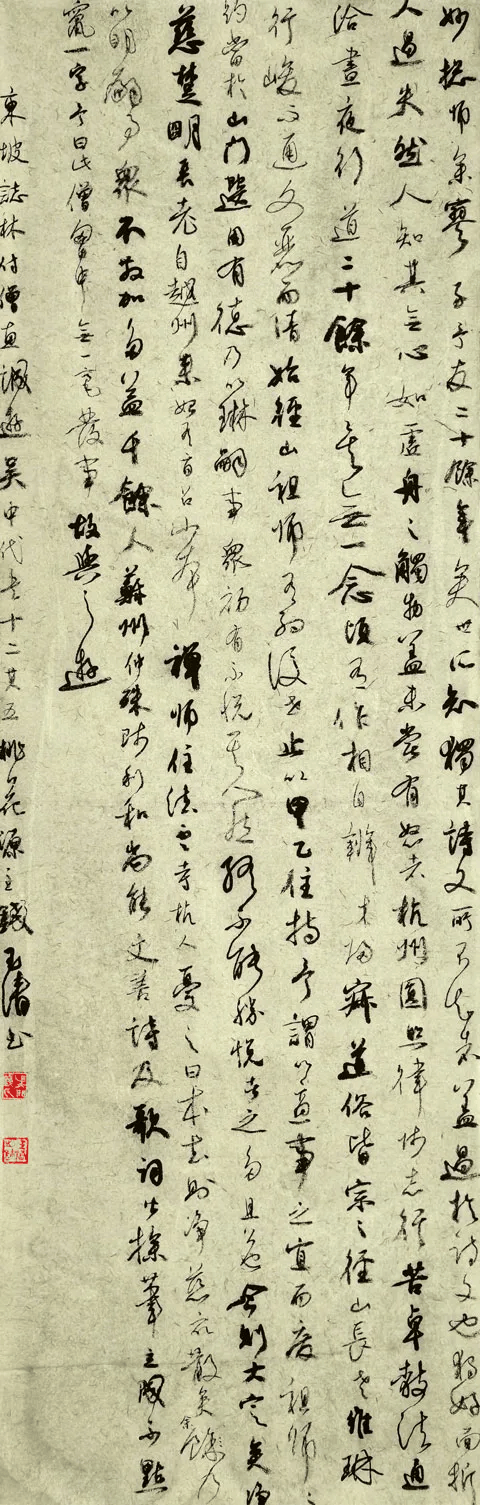 妙揔師參寥子予友二十餘年矣世所知獨其詩文所不知者蓋過於詩文也獨好面折
人過失然人知其無心如虛舟之觸物蓋未嘗有怒者杭州圓照律師志行苦卓敎法通
洽晝夜行道二十餘年矣已無一念頃有作相自辯才歸寂道俗皆宗之徑山長老維琳
行峻而通文麗而清始徑山祖師有約後世止以甲乙住持予謂以適事之宜而廢祖師之
約當於山門選用有德乃以琳嗣事衆初有不悅其人然終不能勝悅者之多且公今則大定矣淨
慈楚明長老自越州來始有旨召小本禪師住法雲寺杭人憂之曰本去則淨慈衆散矣餘乃
以明嗣事衆不散加多益千餘人蘇州仲殊師利和尚能文善詩及歌詞皆操筆立成不點
竄一字予曰此僧胸中無一毫髮事故與之遊
東坡誌林付僧惠誠遊吳中代書十二其五桃花源主錢玉清書